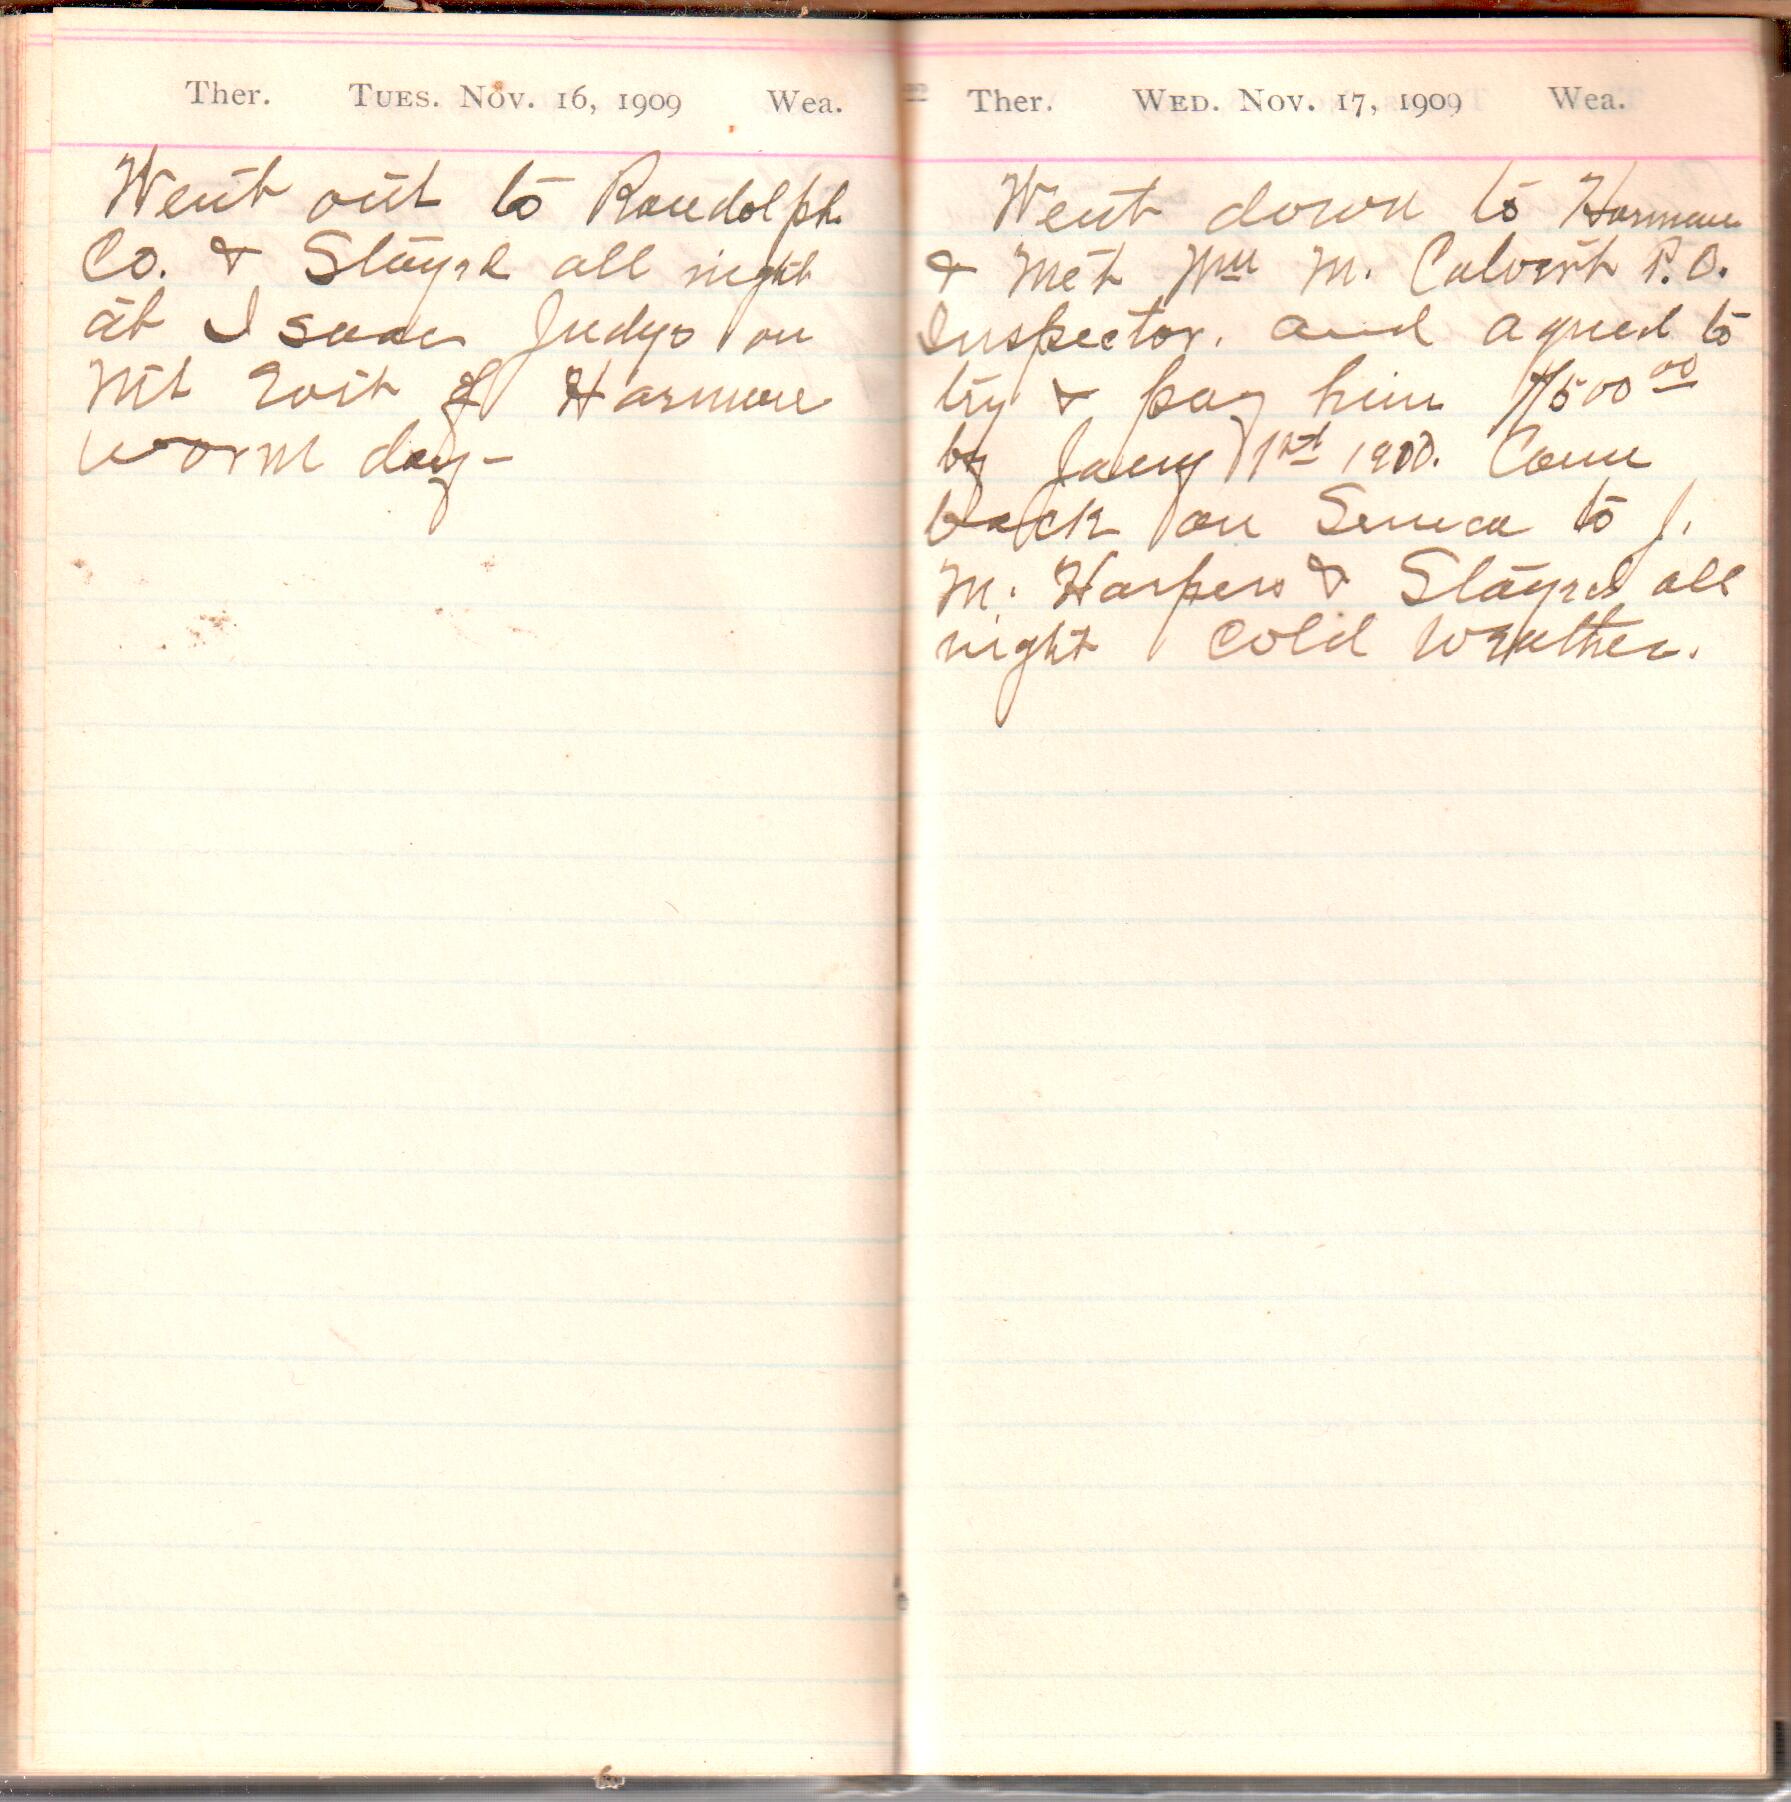 Ther. Tues. Nov. 16, 1909 Wea.
Went out to Randolph
Co. & Stayed all night
at Isaac Judys on
Mt East of Harman
worm day-
Ther. Wed. Nov. 17, 1909 Wea.
Went down to Harman
& Met Wm M. Calvert P.O.
Inspector. and agreed to
try & pay him $500 00
by Jany 1st Come
back on Seneca to J.
M. Harpers & Stayed all
night Cold Weather.